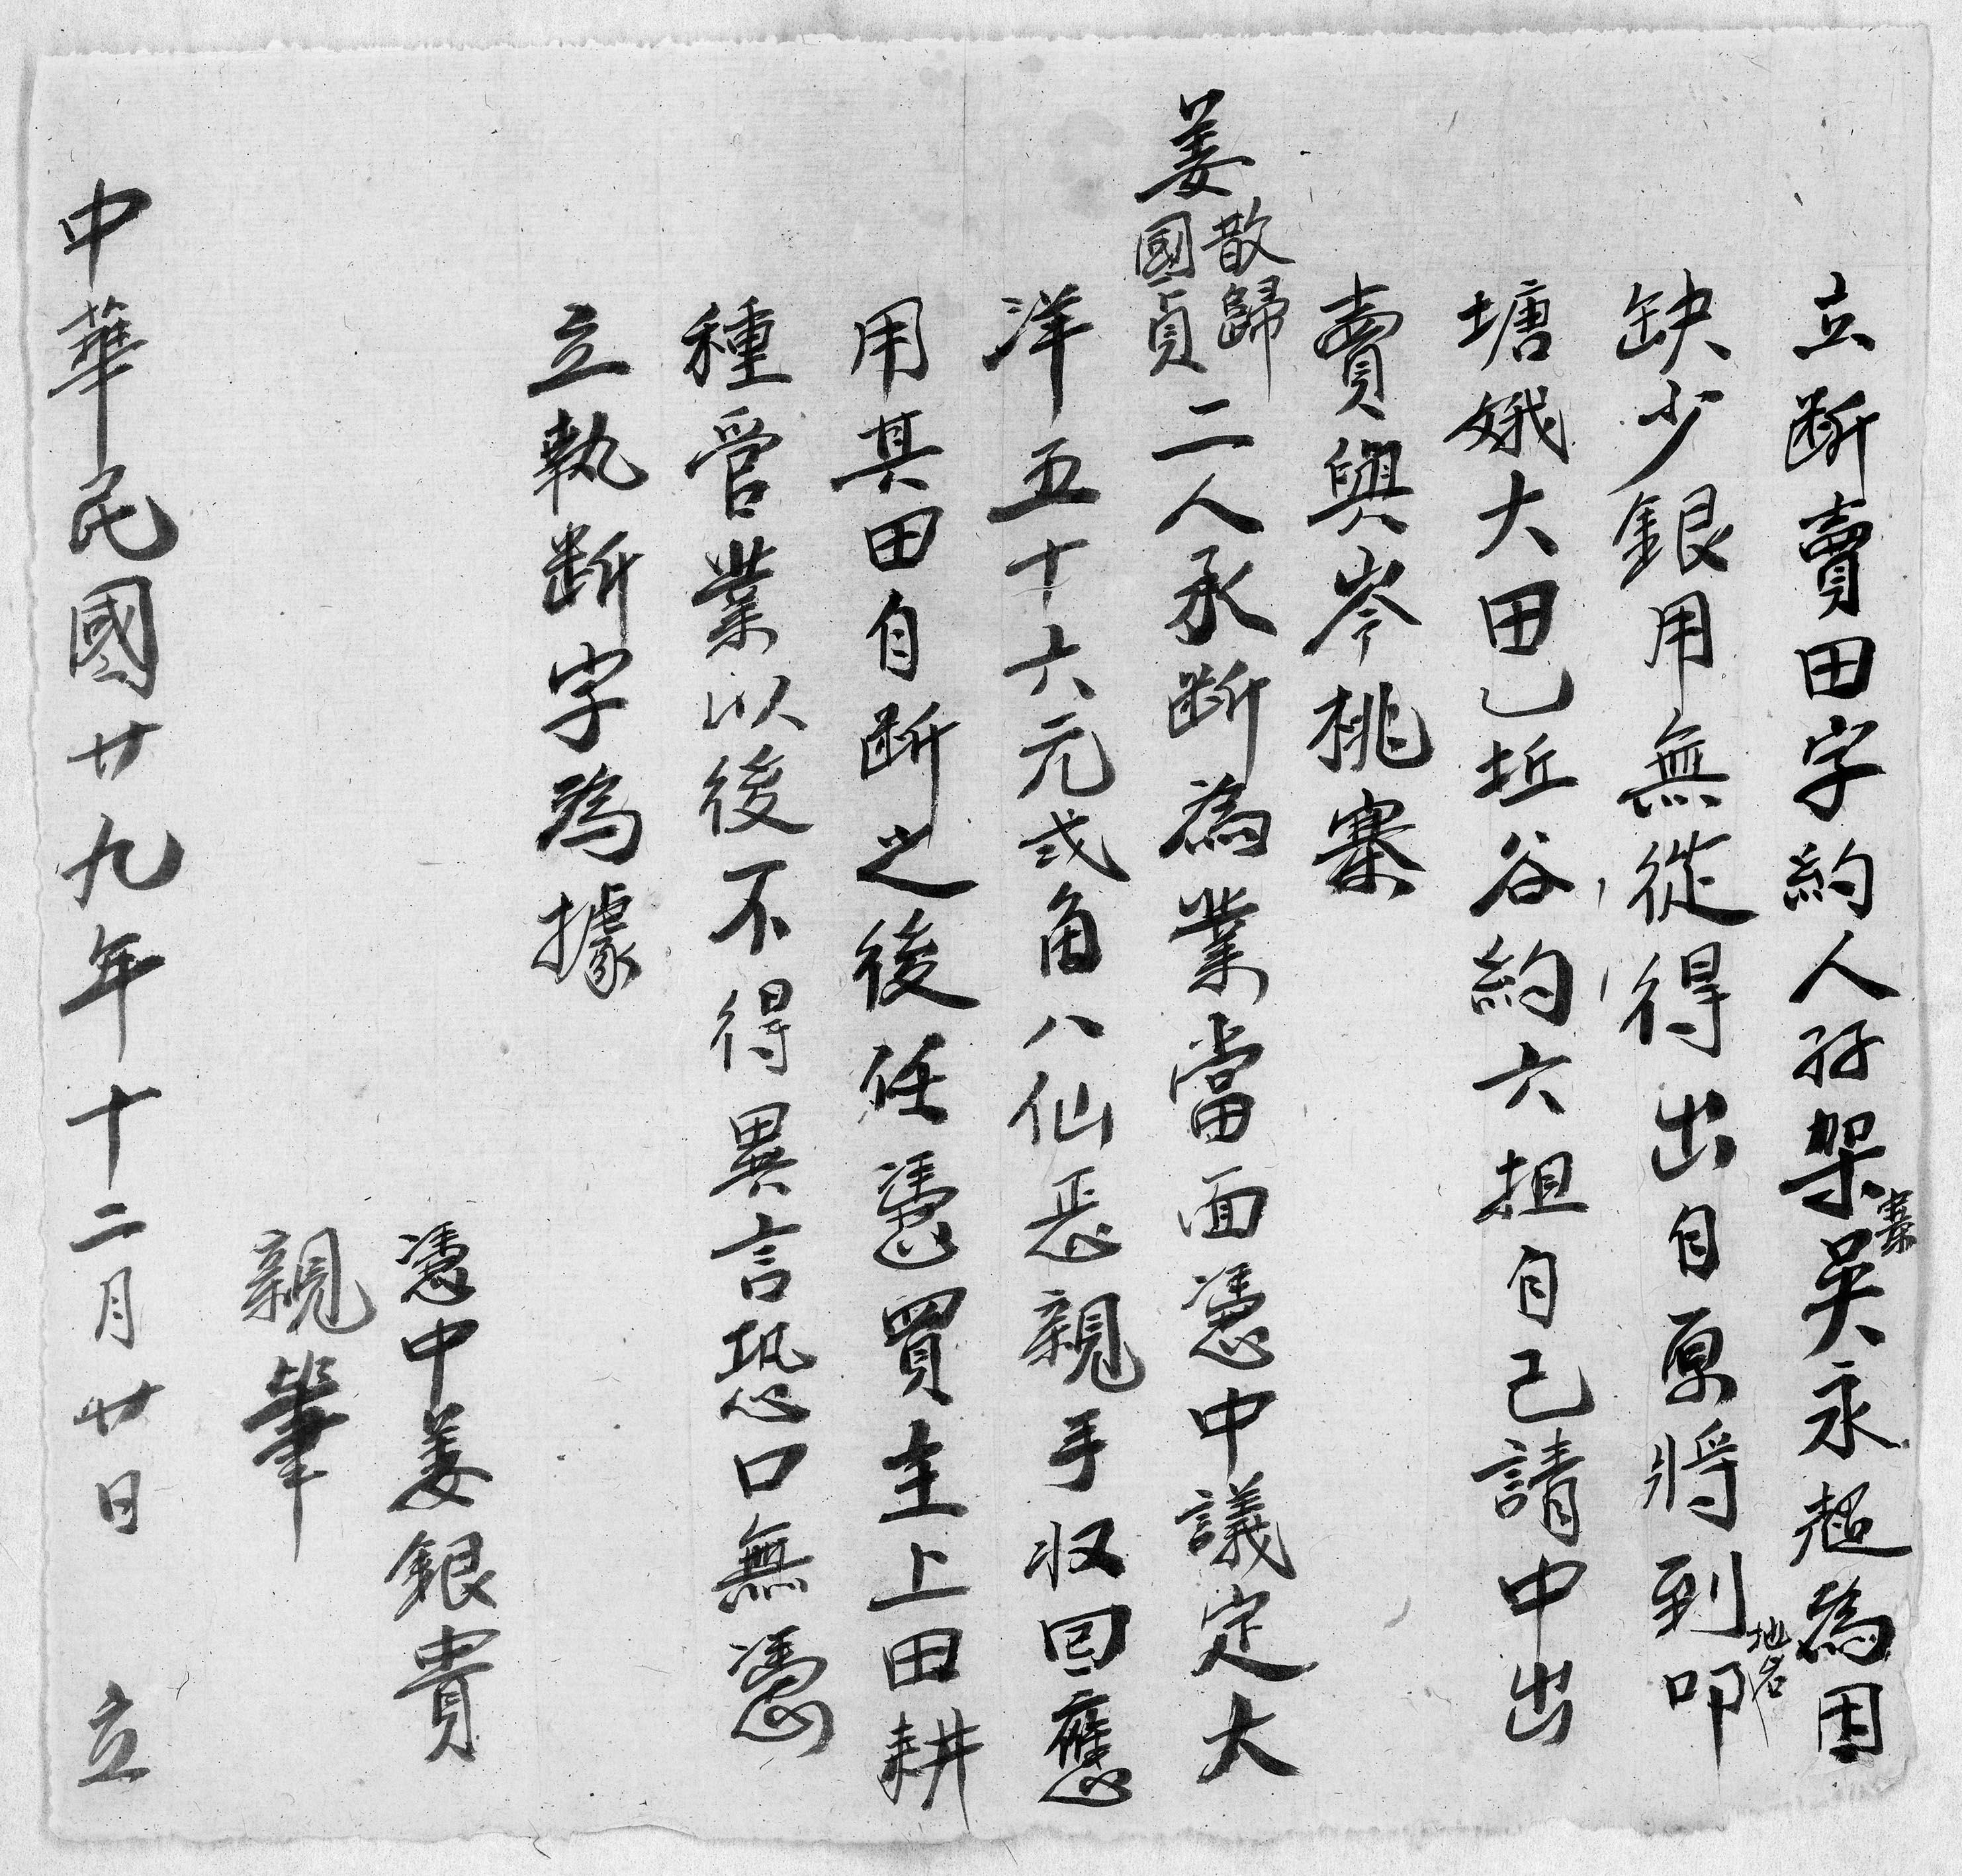 立斷賣田字約人孖架寨吳永超為因
缺少銀用無從得出自原將到地名叩
塘娥大田乙坵谷約六担自己請中出
賣與岑桃寨
姜散歸國貞二人承斷為業當面憑中議定大
洋五十六元弍角八仙恶親手收回應
用其田自斷之後任憑買主上田耕
種管業以後不得異言恐口無憑
立執斷字為據
憑中姜銀貴
親筆
中華民國廿九年十二月廿日 立